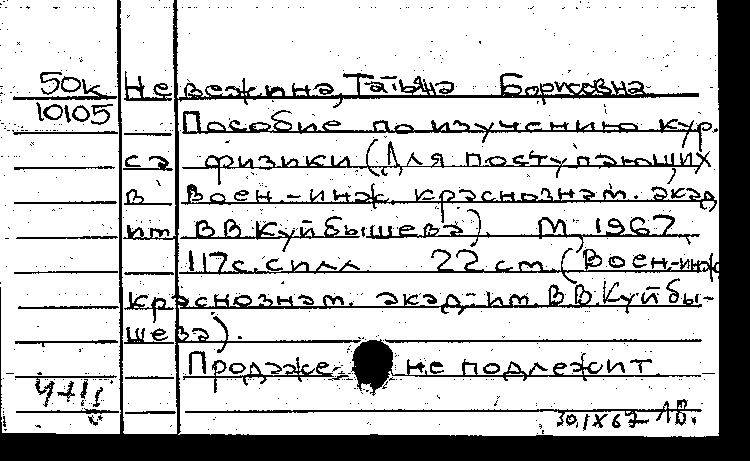 50к Невежина, Татьяна Борисовна
10105
Пособие по изучению кур-
са физики (Для поступающих
в Воен.-инж. краснознам. акад.
им В В Куйбышева). М, 1967
117с. с илл 22 см. (Воен.-инж
краснознам. акад. им. В В. Куйбы-
шева).
Продаже не подлежит.
30.IX 67